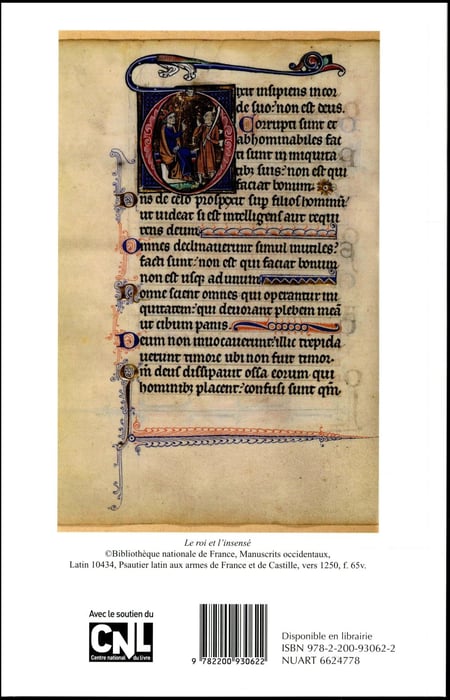 Dixit insipiens in cor
de suo: non est deus.
Corrupti sunt et
abhominabiles fac
ti sunt in iniquita
tibus suis: non est qui
faciat bonum.
Dns de celo prospexit sup filios hominum
ut uideat si est intelligens aut requi
rens deum.
Omnes declinauerunt simul inutiles
facti sunt: non est qui faciat bonum
non est usq ad unum.
Nonne scient omnes qui operantur ini
quitatem: qui deuorant plebem meam
ut cibum panis.
Deum non inuocauerunt: illic trepida
uerunt timore ubi non fuit timor.
Qm deus dissipauit ossa eorum qui
hominibz placent: confusi sunt qm
Le roi et l'insensé
©Bibliothèque nationale de France, Manuscrits occidentaux,
Latin 10434, Psautier latin aux armes de France et de Castille, vers 1250, f. 65v.
Avec le soutien du
CNL
Centre national du livre
9 782200 930622
Disponible en librairie
ISBN 978-2-200-93062-2
NUART 6624778